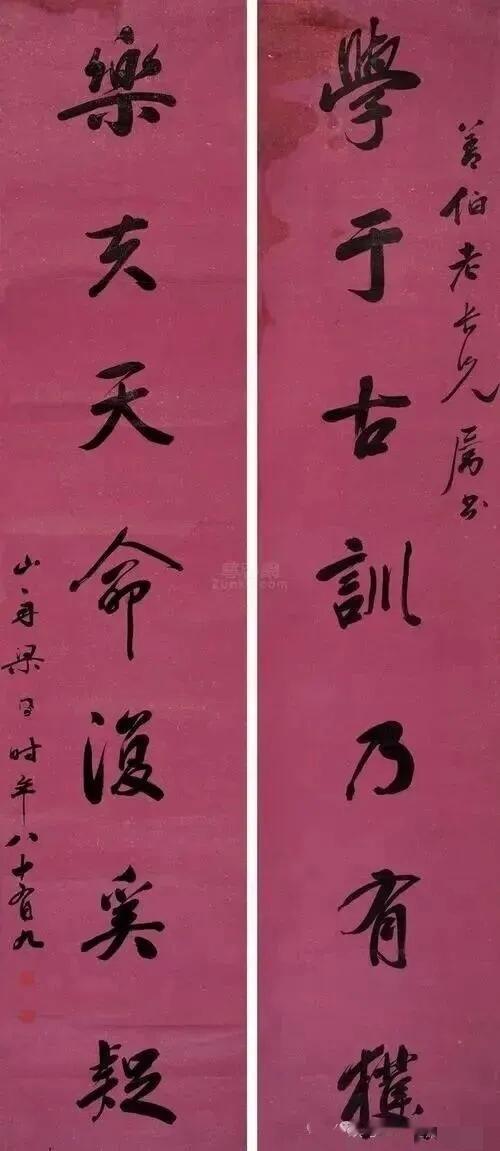 善伯老長兄屬書
學于古訓乃有獲
樂夫天命復奚疑
山舟梁同時年八十有九